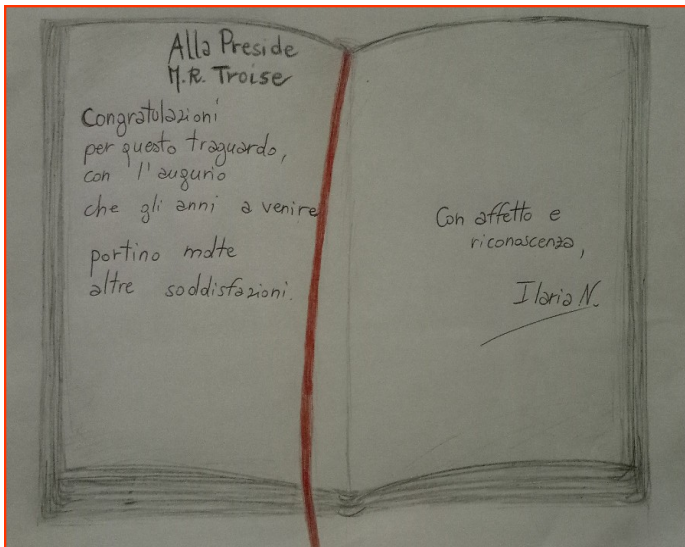 Alla Preside
M.R. Troise
Congratulazioni
per questo traguardo,
con l'augurio
che gli anni a venire
portino molte
altre soddisfazioni.
Con affetto e
riconoscenza,
Ilaria N.